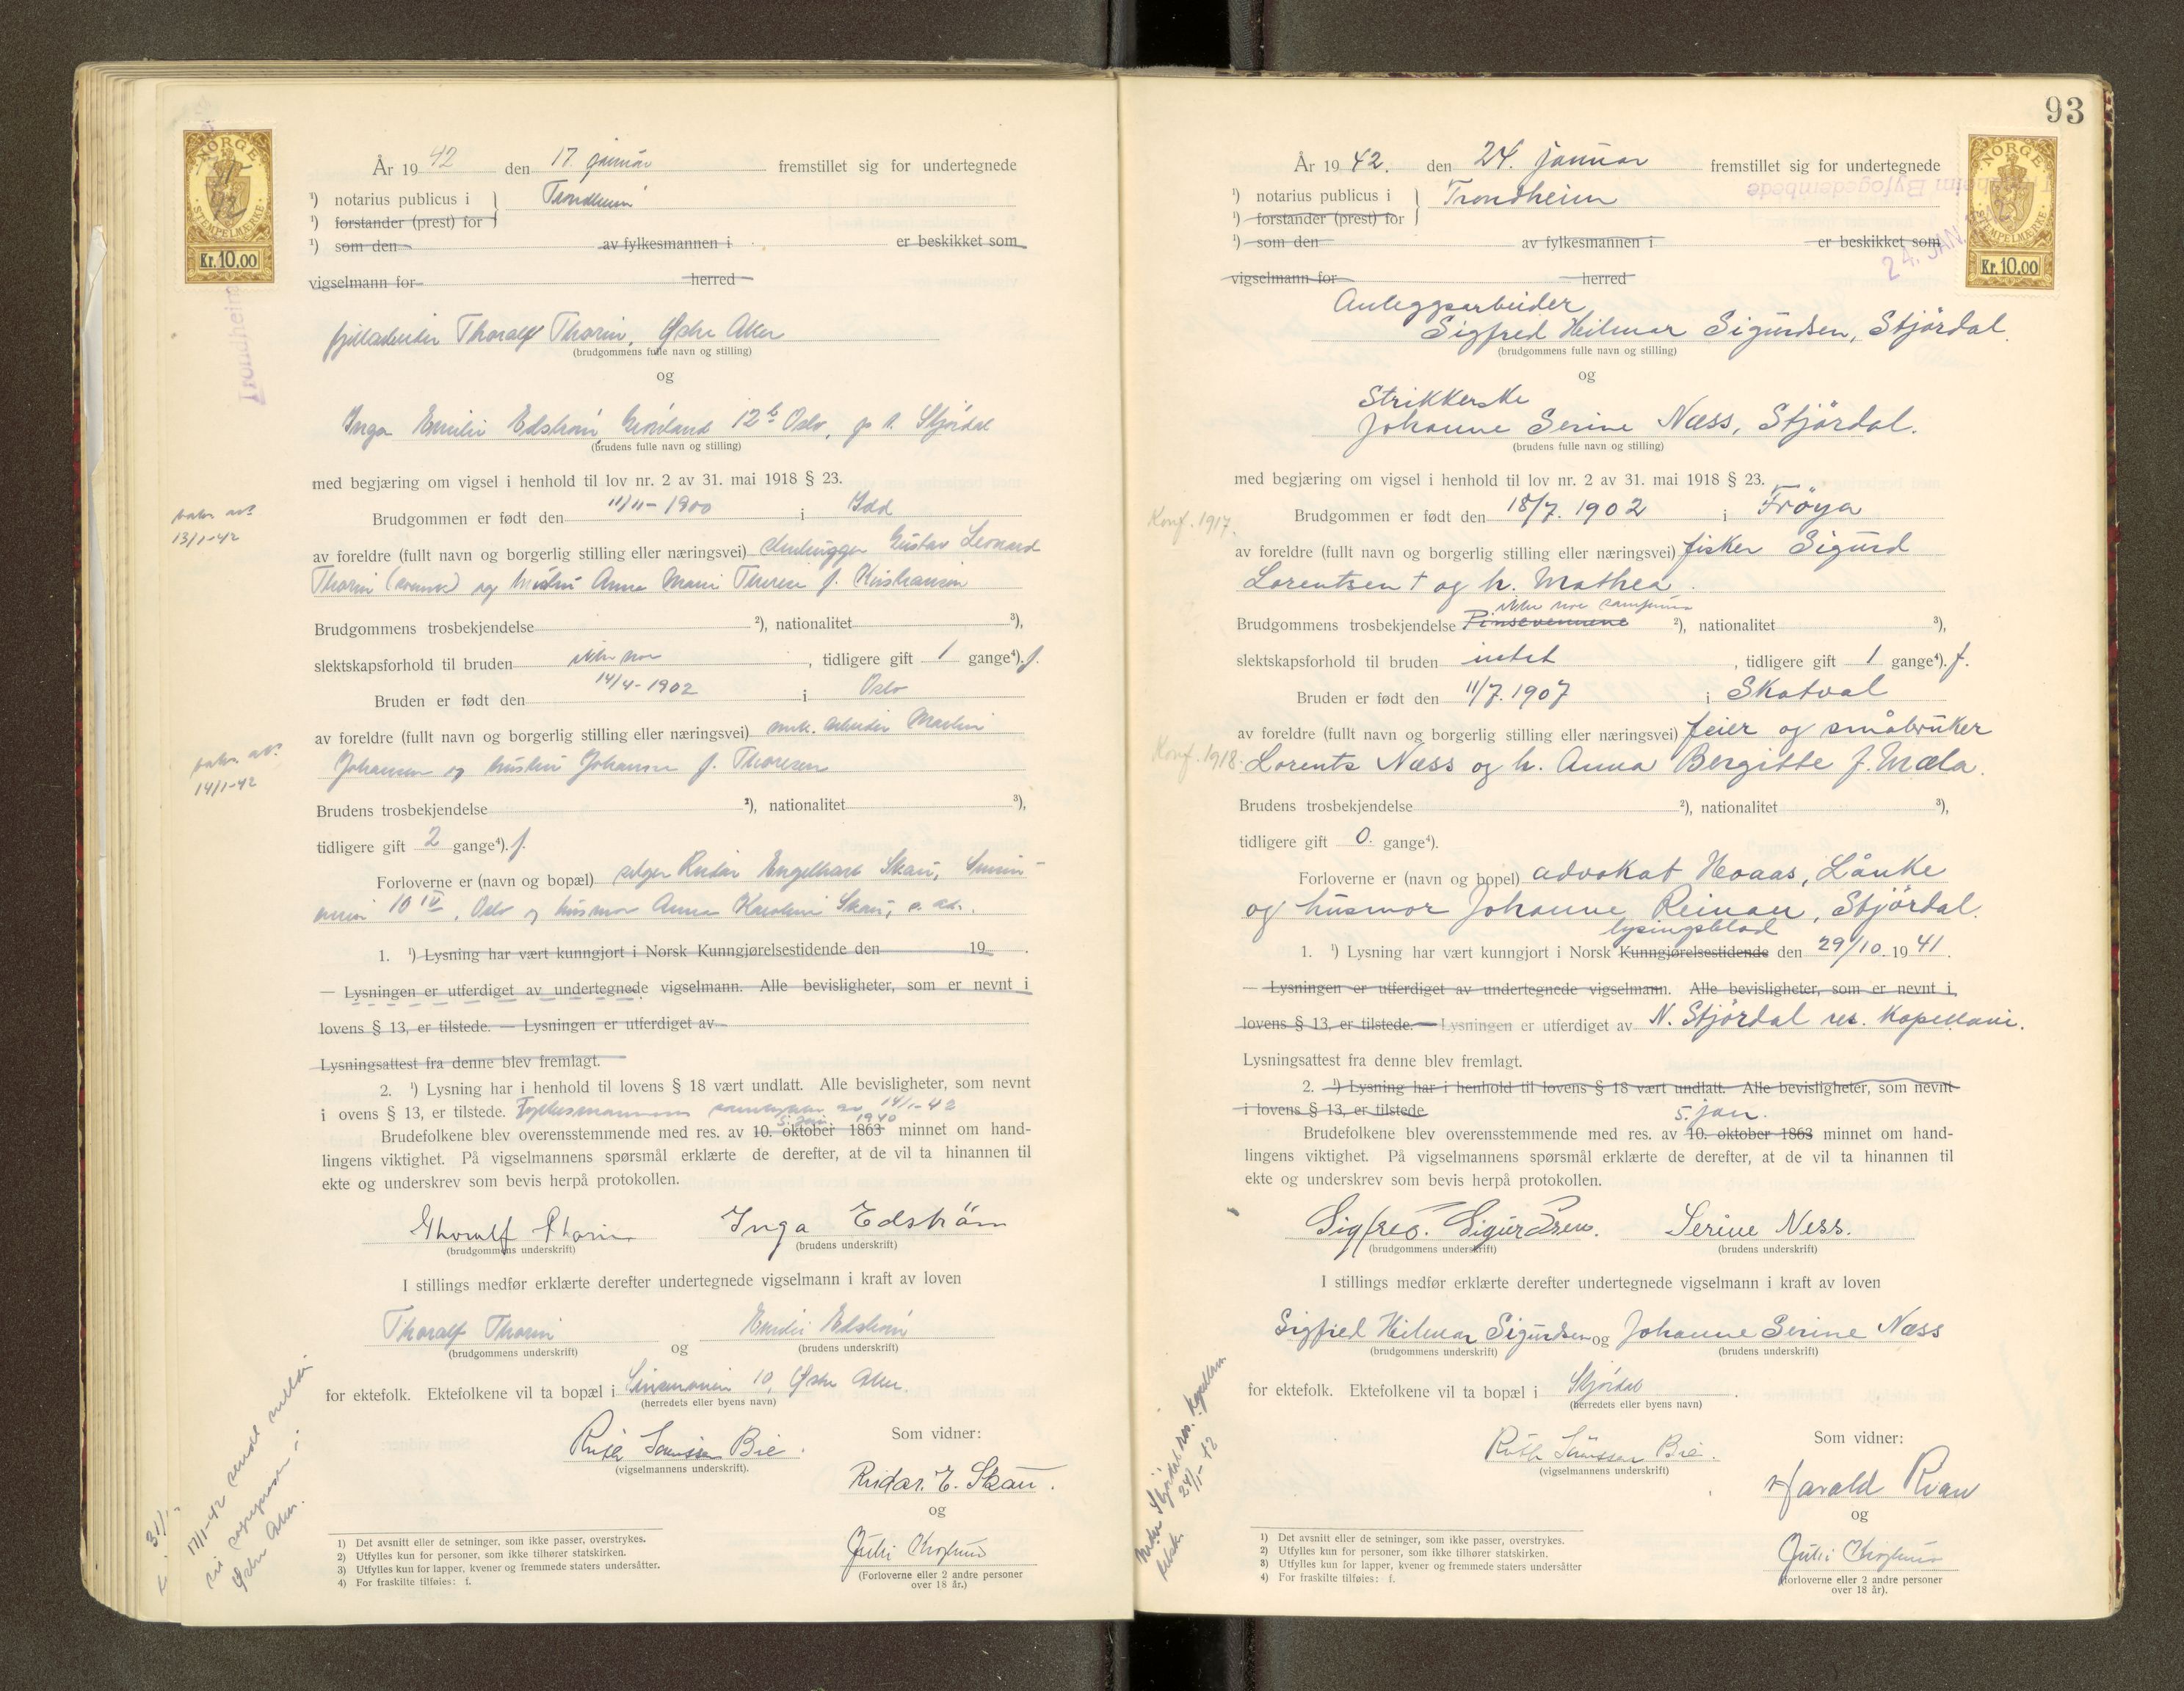 NORGE
STEMPELMÆRKE
Kr. 10,00
År 19 42 den 17. januar fremstillet sig for undertegnede
¹) notarius publicus i Trondheim
¹) forstander (prest) for
¹) som den av fylkesmannen i er beskikket som
vigselmann for herred
Thoralf Thorin, Østre Aker
(brudgommens fulle navn og stilling)
og
Inga Emilie Edström, Grönland 12 b Oslo, Stjördal
(brudens fulle navn og stilling)
med begjæring om vigsel i henhold til lov nr. 2 av 31. mai 1918 § 23.
Brudgommen er født den 11/11-1900 i Idd
13/1-42
av foreldre (fullt navn og borgerlig stilling eller næringsvei) stenhugger Gustav Leonard
Thorin (svensk) og hustru Anna Marie Therese f. Kristiansen
Brudgommens trosbekjendelse ²), nationalitet ³),
slektskapsforhold til bruden ikke noe, tidligere gift 1 gange⁴). f.
Bruden er født den 14/4-1902 i Oslo
av foreldre (fullt navn og borgerlig stilling eller næringsvei) arbeider Martin
Johansen og hustru Johanne f. Thoresen
14/1-42
Brudens trosbekjendelse ²), nationalitet ³),
tidligere gift 2 gange⁴). f.
Forloverne er (navn og bopæl) selger Reidar Engelhart Skau, Sinsen-
veien 10 IV, Oslo og husmor Anna Karoline Skau, s. ad.
1. ¹) Lysning har vært kunngjort i Norsk Kunngjørelsestidende den 19 .
— Lysningen er utferdiget av undertegnede vigselmann. Alle bevisligheter, som er nevnt i
lovens § 13, er tilstede. — Lysningen er utferdiget av
Lysningsattest fra denne blev fremlagt.
2. ¹) Lysning har i henhold til lovens § 18 vært undlatt. Alle bevisligheter, som nevnt
i ovens § 13, er tilstede. Fylkesmannens samtykke av 14/1-42
5. jan. 1940
Brudefolkene blev overensstemmende med res. av 10. oktober 1863 minnet om hand-
lingens viktighet. På vigselmannens spørsmål erklærte de derefter, at de vil ta hinannen til
ekte og underskrev som bevis herpå protokollen.
Thoralf Thorin Inga Edström
(brudgommens underskrift) (brudens underskrift)
I stillings medfør erklærte derefter undertegnede vigselmann i kraft av loven
Thoralf Thorin og Emilie Edström
(brudgommens underskrift) (brudens underskrift)
for ektefolk. Ektefolkene vil ta bopæl i Sinsenveien 10, Østre Aker.
(herredets eller byens navn)
Ruth Sørenssen Bie.
(vigselmannens underskrift).
Som vidner:
Reidar. E. Skau.
og
(Forloverne eller 2 andre personer
over 18 år.)
17/1-42 sendt melding
til sognepresten i
Østre Aker.
1) Det avsnitt eller de setninger, som ikke passer, overstrykes.
2) Utfylles kun for personer, som ikke tilhører statskirken.
3) Utfylles kun for lapper, kvener og fremmede staters undersåtter.
4) For fraskilte tilføies: f.
93
NORGE
STEMPELMÆRKE
Kr. 10,00
Trondheim Byfogedembede
24. JAN.
År 19 42. den 24. januar fremstillet sig for undertegnede
¹) notarius publicus i Trondheim
¹) forstander (prest) for
¹) som den av fylkesmannen i er beskikket som
vigselmann for herred
Anleggsarbeider
Sigfred Hilmar Sigurdsen, Stjördal.
(brudgommens fulle navn og stilling)
og
Strikkerske
Johanne Serine Næss, Stjördal.
(brudens fulle navn og stilling)
med begjæring om vigsel i henhold til lov nr. 2 av 31. mai 1918 § 23.
Konf. 1917.
Brudgommen er født den 18/7. 1902 i Fröya
av foreldre (fullt navn og borgerlig stilling eller næringsvei) fisker Sigurd
Lorentsen † og h. Mathea.
ikke noe samfunn
Brudgommens trosbekjendelse Pinsevennene ²), nationalitet ³),
slektskapsforhold til bruden intet, tidligere gift 1 gange⁴). f.
Bruden er født den 11/7. 1907 i Skatval
av foreldre (fullt navn og borgerlig stilling eller næringsvei) feier og småbruker
Konf. 1918.
Lorents Næss og h. Anna Bergitte f. Mæla.
Brudens trosbekjendelse ²), nationalitet ³),
tidligere gift 0. gange⁴).
Forloverne er (navn og bopel) advokat Hoaas, Lånke
og husmor Johanne Reinau, Stjördal.
lysingsblad
1. ¹) Lysning har vært kunngjort i Norsk Kunngjørelsestidende den 29/10. 19 41.
— Lysningen er utferdiget av undertegnede vigselmann. Alle bevisligheter, som er nevnt i
lovens § 13, er tilstede. — Lysningen er utferdiget av N. Stjördal res. kapellani.
Lysningsattest fra denne blev fremlagt.
2. ¹) Lysning har i henhold til lovens § 18 vært undlatt. Alle bevisligheter, som nevnt
i lovens § 13, er tilstede
5. jan.
Brudefolkene blev overensstemmende med res. av 10. oktober 1863 minnet om hand-
lingens viktighet. På vigselmannens spørsmål erklærte de derefter, at de vil ta hinannen til
ekte og underskrev som bevis herpå protokollen.
Sigfred. Sigurdsen. Serine Ness.
(brudgommens underskrift) (brudens underskrift)
I stillings medfør erklærte derefter undertegnede vigselmann i kraft av loven
Sigfred Hilmar Sigurdsen og Johanne Serine Næss
(brudgommens underskrift) (brudens underskrift)
for ektefolk. Ektefolkene vil ta bopæl i Stjördal.
(herredets eller byens navn)
Ruth Sørenssen Bie.
(vigselmannens underskrift)
Som vidner:
Harald Rian
og
(forloverne eller 2 andre personer
over 18 år).
Nedre Stjördal res. kapellani
24/1-42
1) Det avsnitt eller de setninger, som ikke passer, overstrykes.
2) Utfylles kun for personer, som ikke tilhører statskirken.
3) Utfylles kun for lapper, kvener og fremmede staters undersåtter
4) For fraskilte tilføies: f.